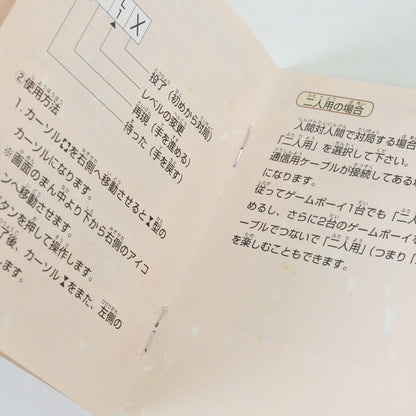 投了(初めから対局)
レベルの変更
再現(手を進める)
待った(手を戻す)
②使用方法
1.カーソルを右側へ移動させると▼型の
カーソルになります。
※画面のまん中より下から右側のアイコ
ンへ移動させます。
タンを押して操作します。
了後、カーソル▼をまた、左側の
します。
二人用の場合
人間対人間で対局する場合
「二人用」を選択して下さい。
通信用ケーブルが接続してある場
になります。
従ってゲームボーイ1台でも「二人
めるし、さらに2台のゲームボーイを
ーブルでつないで「二人用」(つまり「
を楽しむこともできます。